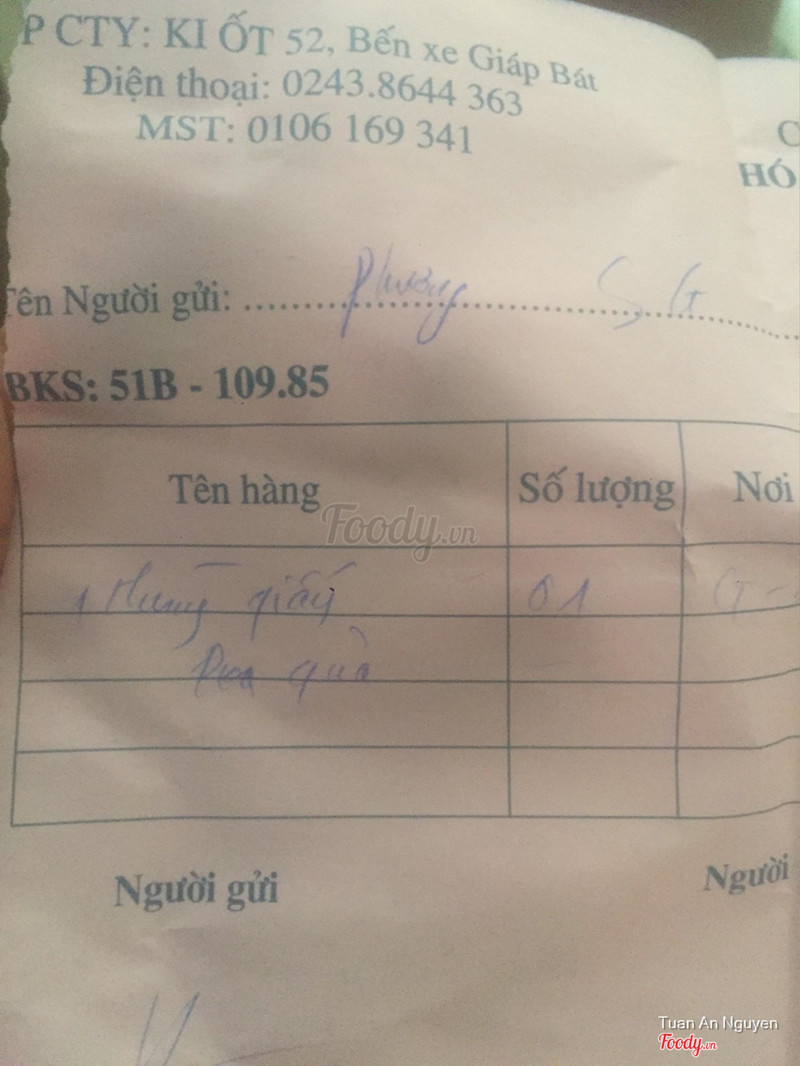 P CTY: KI ỐT 52, Bến xe Giáp Bát
Điện thoại: 0243.8644 363
MST: 0106 169 341
C
HÓ
Tên Người gửi: Phương S G
BKS: 51B - 109.85
Tên hàng Số lượng Nơi
Foody.vn
1 thùng giấy 01 G
quà
Người gửi Người
Tuan An Nguyen
Foody.vn